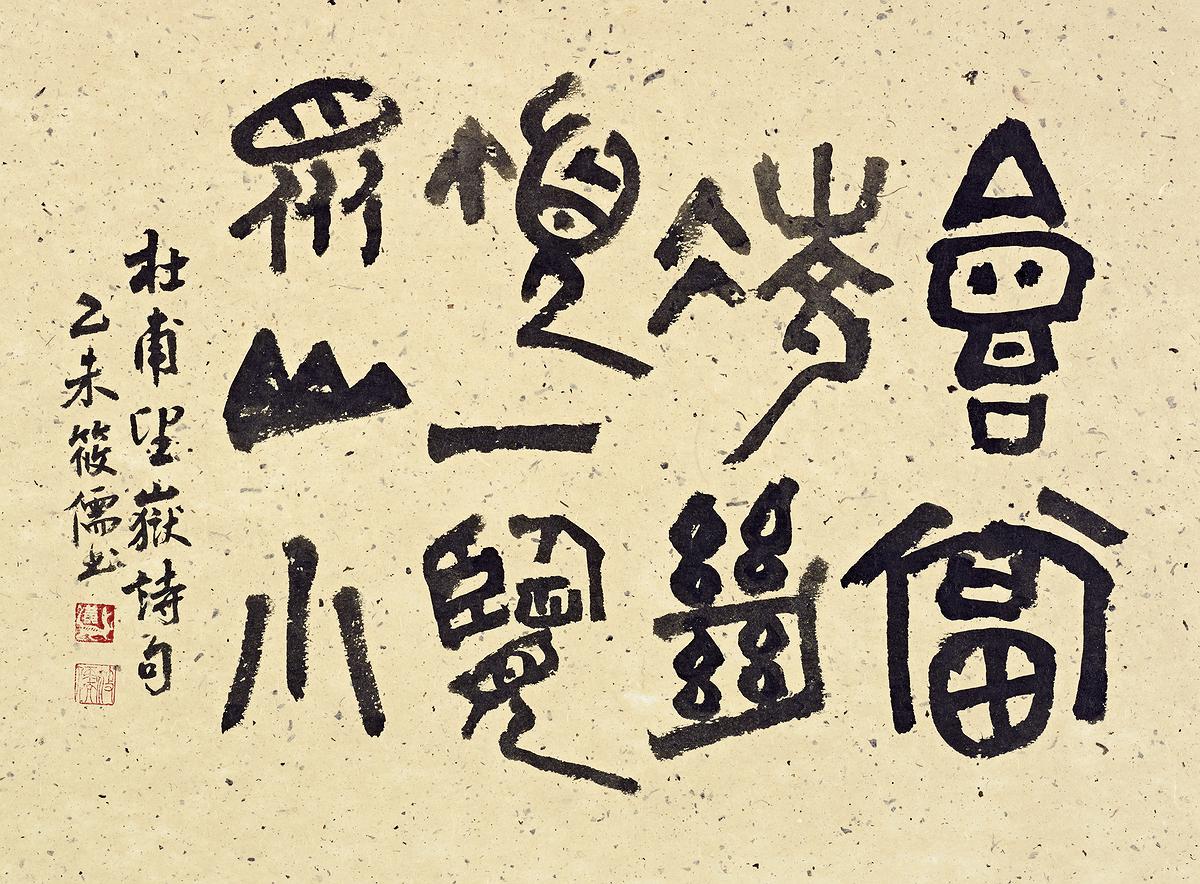 會當
凌絕
頂一覽
眾山小
杜甫望嶽詩句
乙未筱儒书